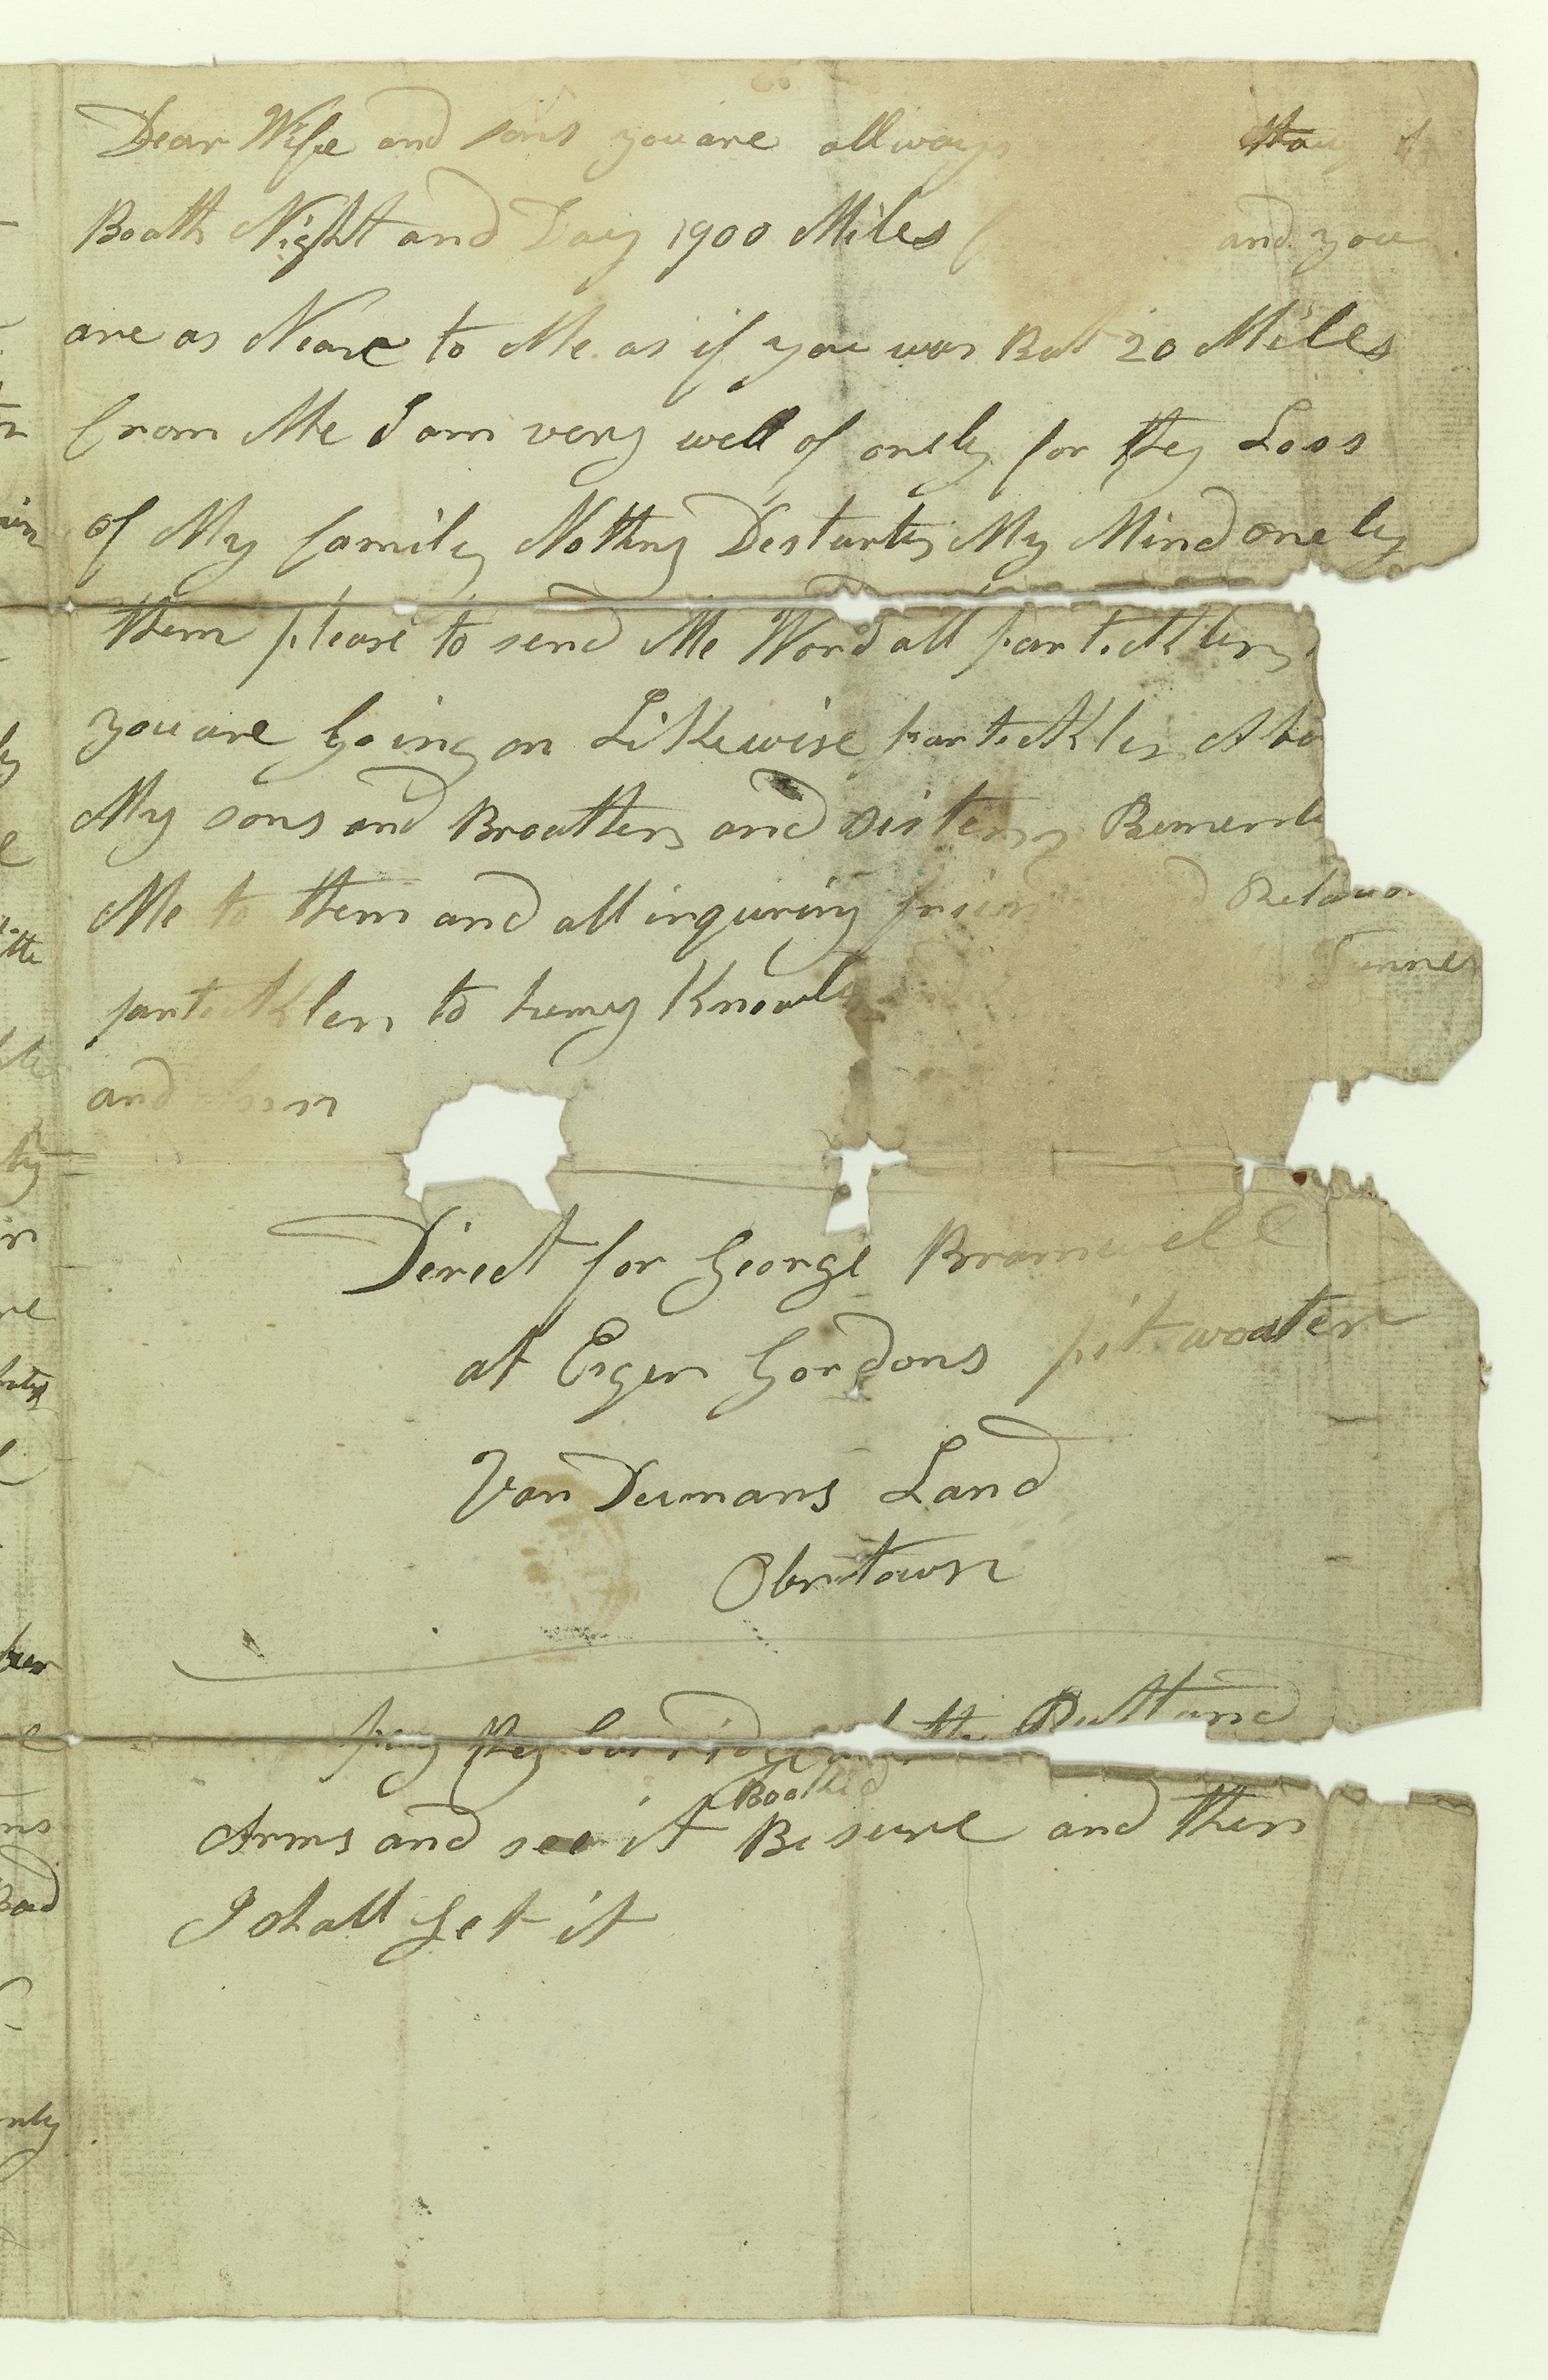 Dear Wife and sons you are allways
Boath Night and Day 1900 Miles and you
are as Neare to Me as if you was But 20 Miles
from Me I am very well of onely for they Loss
of My family Nothing Desturbs My Mind onely
them please to send Me Word all partickler
you are Going on Likewise partickler Abo
My sons and Broathers and sisters Rememb
Me to them and all inquiring frien d Relation
partickler to henery Knowl Turner
and
Direct for George Bramwell
at Esqer Gordons pit woater
Van Deimans Land
Obrtown
pay they carridge at the Rutland
Booked
Arms and see it Be sure and then
I shall Get it